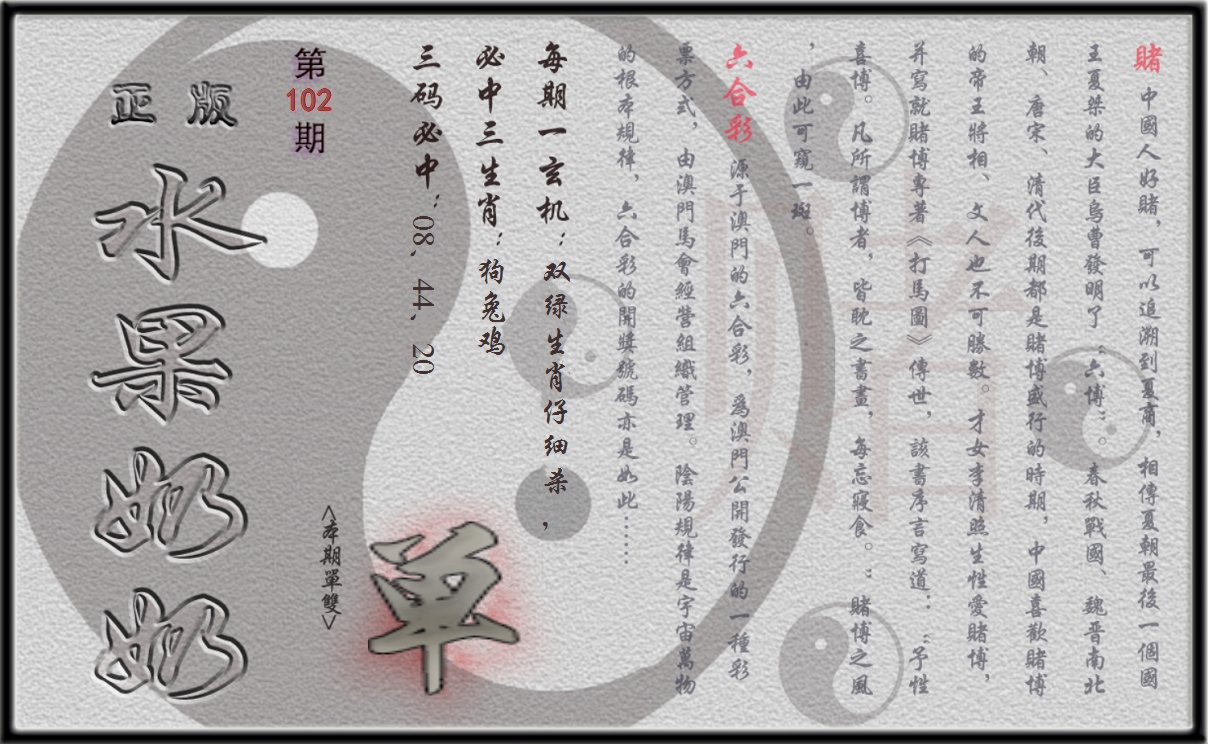 賭 中國人好賭，可以追溯到夏商，相傳夏朝最後一個國
王夏桀的大臣烏曹發明了“六博”。春秋戰國、魏晉南北
朝、唐宋、清代後期都是賭博盛行的時期，中國喜歡賭博
的帝王將相、文人也不可勝數。才女李清照生性愛賭博，
并寫就賭博專著《打馬圖》傳世，該書序言寫道：“予性
喜博。凡所謂博者，皆耽之書畫，每忘寢食。：賭博之風
，由此可窺一斑。
六合彩 源于澳門的六合彩，為澳門公開發行的一種彩
票方式，由澳門馬會經營組織管理。陰陽規律是宇宙萬物
的根本規律，六合彩的開獎號碼亦是如此……
每期一玄机：双绿生肖仔细杀，
必中三生肖：狗兔鸡
三码必中：08、44、20
單
<本期單雙>
第
102
期
正版
水果奶奶